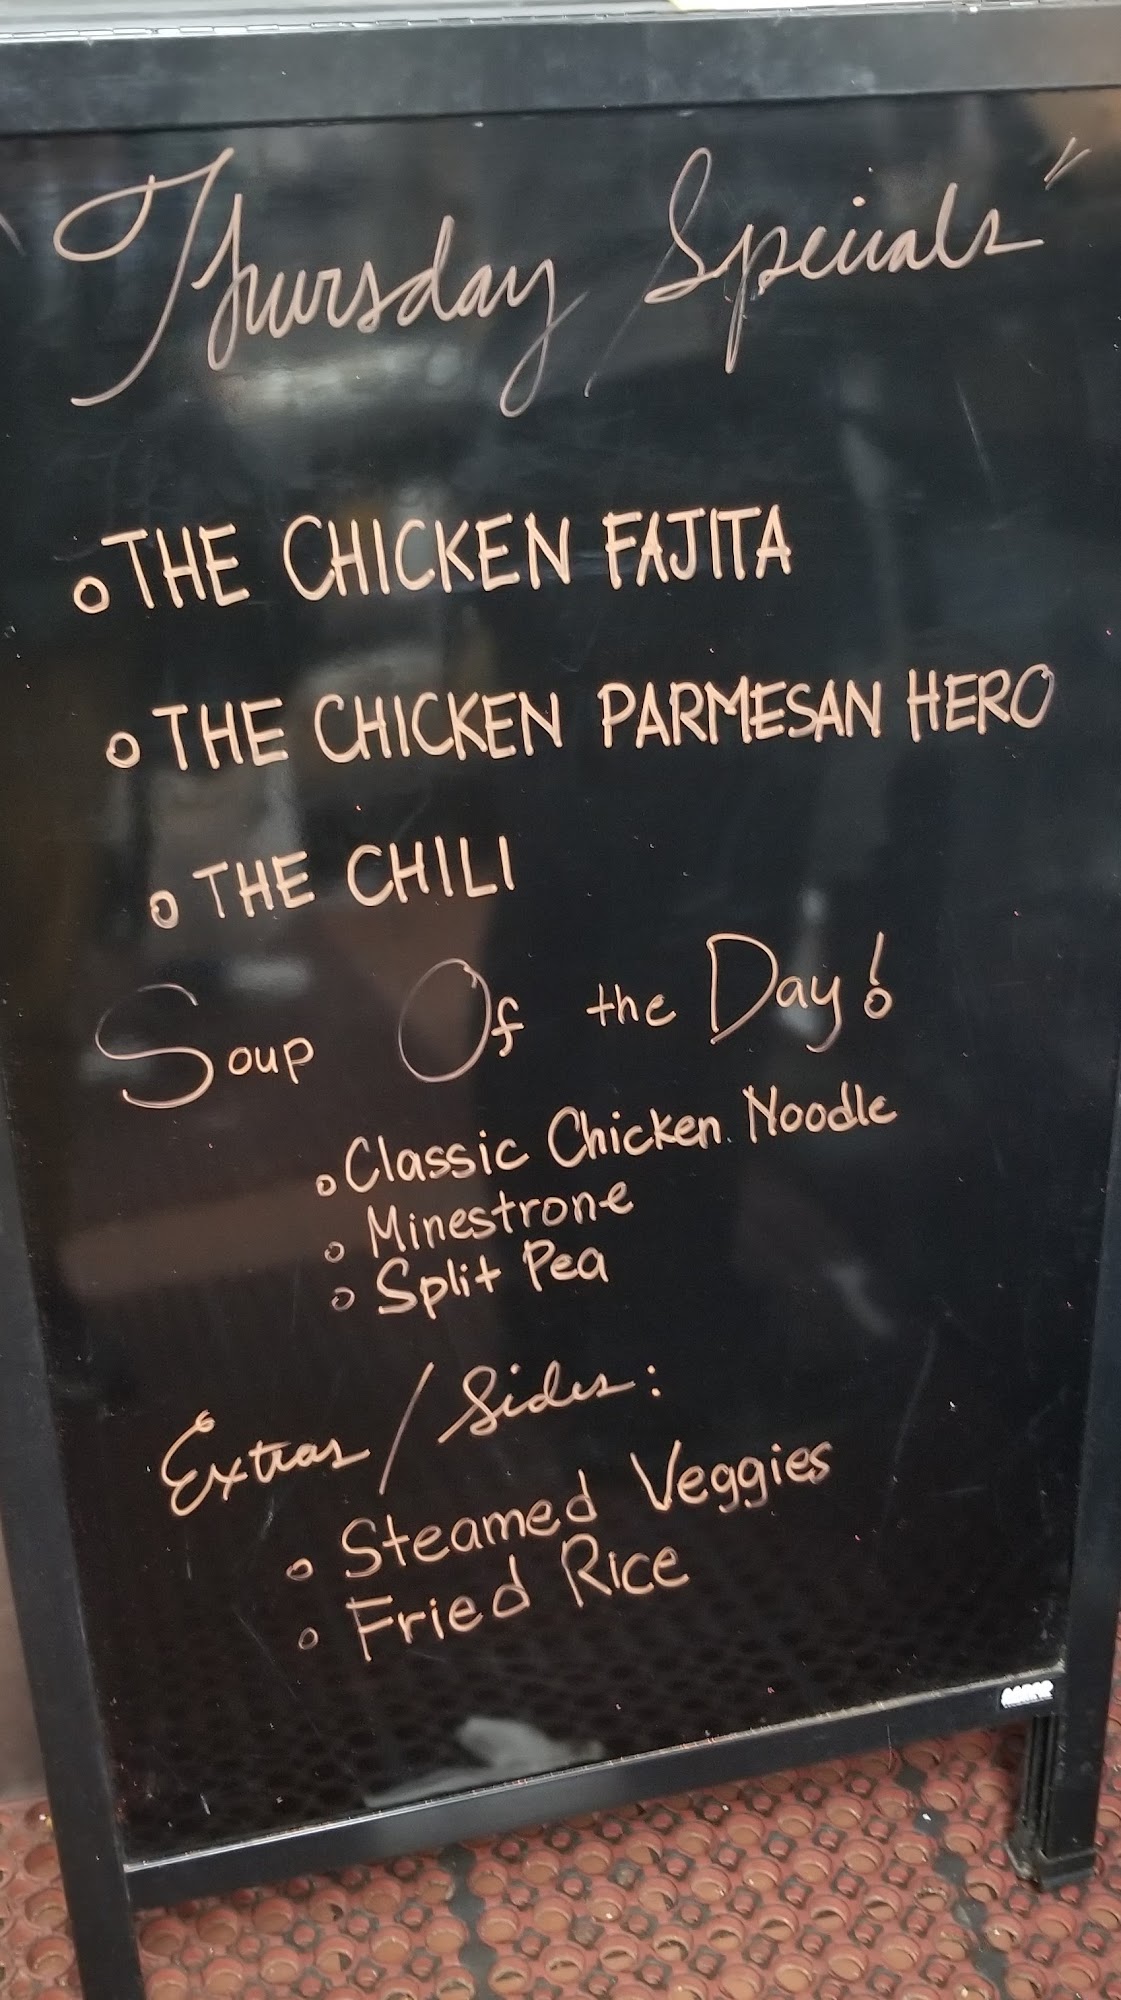 "Thursday Specials"
THE CHICKEN FAJITA
THE CHICKEN PARMESAN HERO
THE CHILI
Soup Of the Day!
Classic Chicken Noodle
Minestrone
Split Pea
Extras/Sides:
Steamed Veggies
Fried Rice